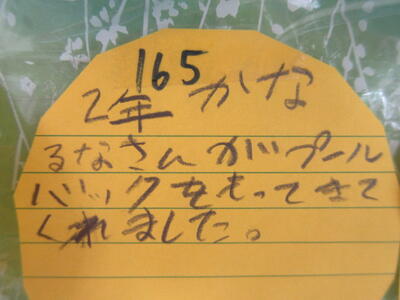 165
2年 かな
るなさんがプール
バックをもってきて
くれました。